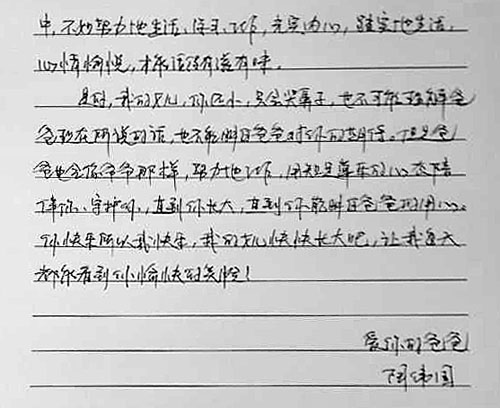 中，不如努力地生活、学习、工作，充实内心，踏实地生活，
心情愉悦，才能活得有滋有味。
是的，我的女儿，你还小，只会哭鼻子，也不可能理解爸
爸现在所说的话，也不能明白爸爸对你的期待。但是爸
爸也会像爷爷那样，努力地工作，用知足喜乐的心态陪
伴你、守护你，直到你长大，直到你能明白爸爸的用心。
你快乐所以我快乐，我的女儿快快长大吧，让我每天
都能看到你愉快的笑脸！
爱你的爸爸
国